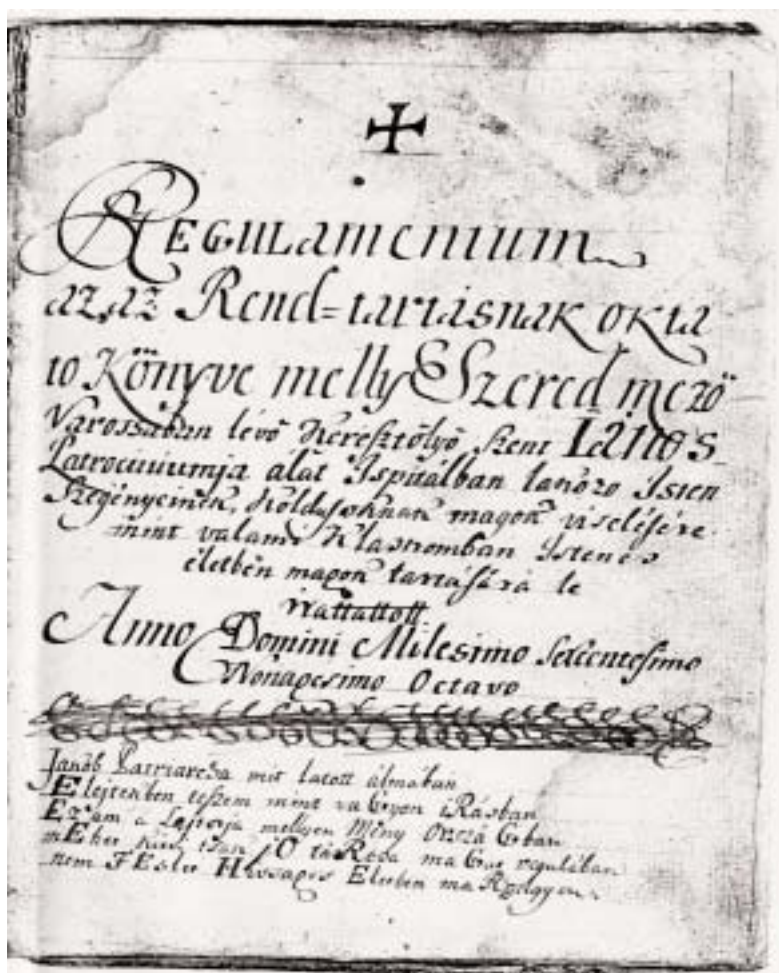 REGULamenium
az,az Rend=tartásnak okta
to Könyve melly Szered mező
Varossaban lévő Keresztőlyő Szent Iános
Patrociniumja álat Ispitálban lakózo Isten
Szegényeinek, Koldusoknak magok viselésére
mint valami Klastromban Istenes
életbén magok tartására le
irattatott
Anno Domini Milesimo Sexcentesimo
Nonagesimo Octavo
Jacób Patriarcha mit latott álmában
Elejtekben teszem mint vagyon iRásban
Ez am a Lajtorja mellyen Meny Orszá Gban
mEher
nem FEslet Hossages Eletben